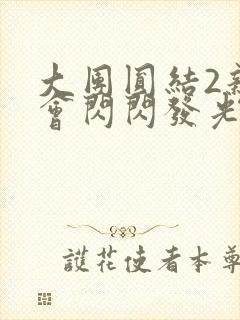 大團圓結2
會閃閃發光
護花使者本尊